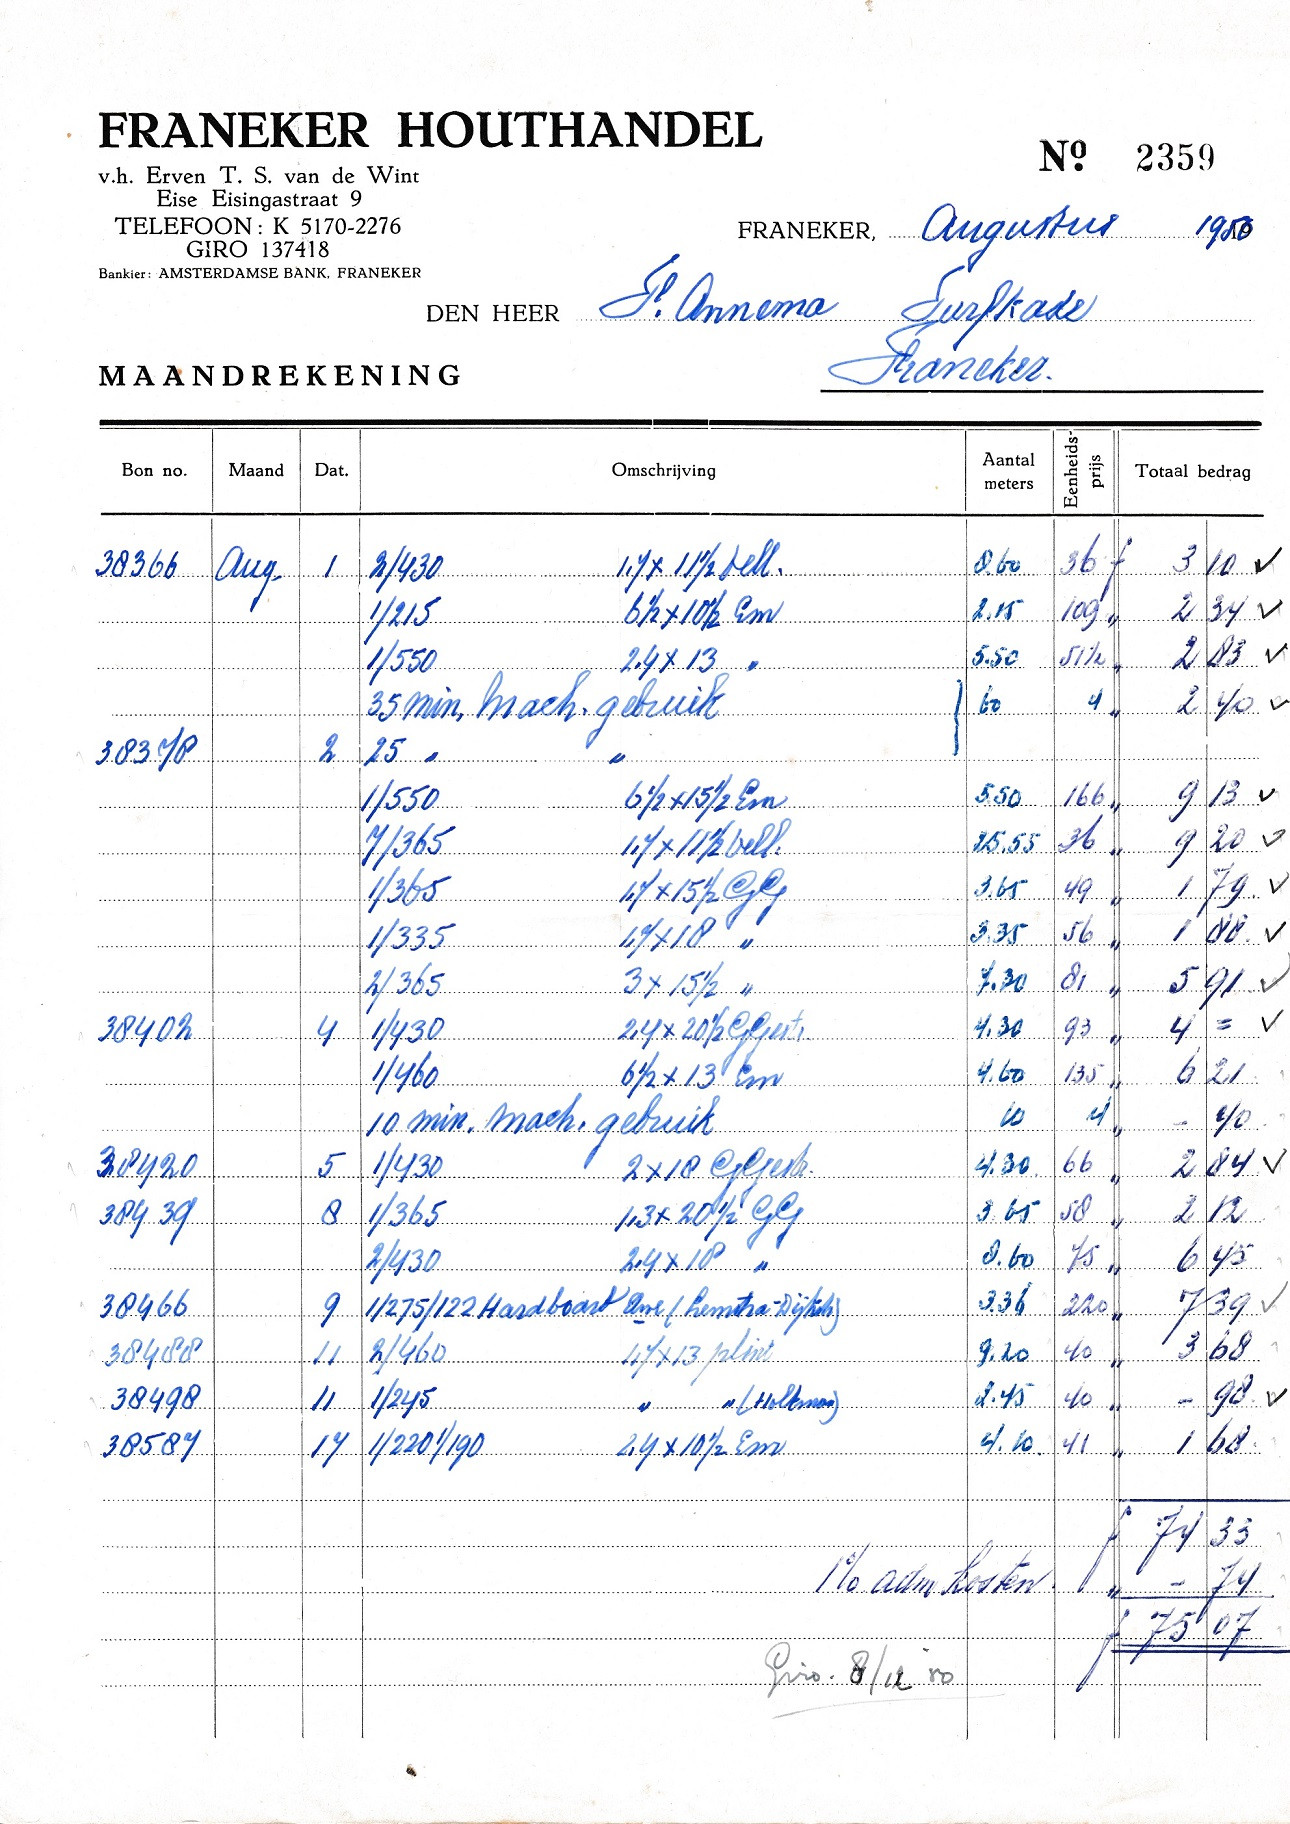 FRANEKER HOUTHANDEL
v.h. Erven T. S. van de Wint
Eise Eisingastraat 9
TELEFOON: K 5170-2276
GIRO 137418
Bankier: AMSTERDAMSE BANK, FRANEKER
Nº 2359
FRANEKER, Augustus 1950
DEN HEER Annema Turfkade
Franeker.
MAANDREKENING
Bon no. Maand Dat. Omschrijving Aantal meters Eenheids-prijs Totaal bedrag
38366 Aug. 1 2/430 1.7 x 11½ vell. 8.60 36 f 3 10 ✓
1/215 6½ x 10½ Em 2.15 109 „ 2 34 ✓
1/550 2.4 x 13 „ 5.50 51½ „ 2 83 ✓
35 min. Mach. gebruik } 60 4 „ 2 40 ✓
38378 2 25 „ „
1/550 6½ x 15½ Em 5.50 166 „ 9 13 ✓
7/365 1.7 x 11½ vell. 25.55 36 „ 9 20 ✓
1/365 1.7 x 15½ GG 3.65 49 „ 1 79 ✓
1/335 1.7 x 18 „ 3.35 56 „ 1 88 ✓
2/365 3 x 15½ „ 7.30 81 „ 5 91 ✓
38402 4 1/430 2.4 x 20½ GGest. 4.30 93 „ 4 = ✓
1/460 6½ x 13 Em 4.60 135 „ 6 21
10 min. mach. gebruik 10 4 „ - 40
38420 5 1/430 2 x 18 GGest. 4.30 66 „ 2 84 ✓
38439 8 1/365 1.3 x 20½ GG 3.65 58 „ 2 12
2/430 2.4 x 18 „ 8.60 75 „ 6 45
38466 9 1/275/122 Hardboard 3.36 220 „ 7 39 ✓
38488 11 2/460 1.7 x 13 plint 9.20 40 „ 3 68
38498 11 1/245 „ „ (Holkema) 2.45 40 „ - 98 ✓
38587 17 1/220 1/190 2.4 x 10½ Em 4.10 41 „ 1 68
f 74 33
1% adm. kosten. „ - 74
f 75 07
Giro. 8/12 '50